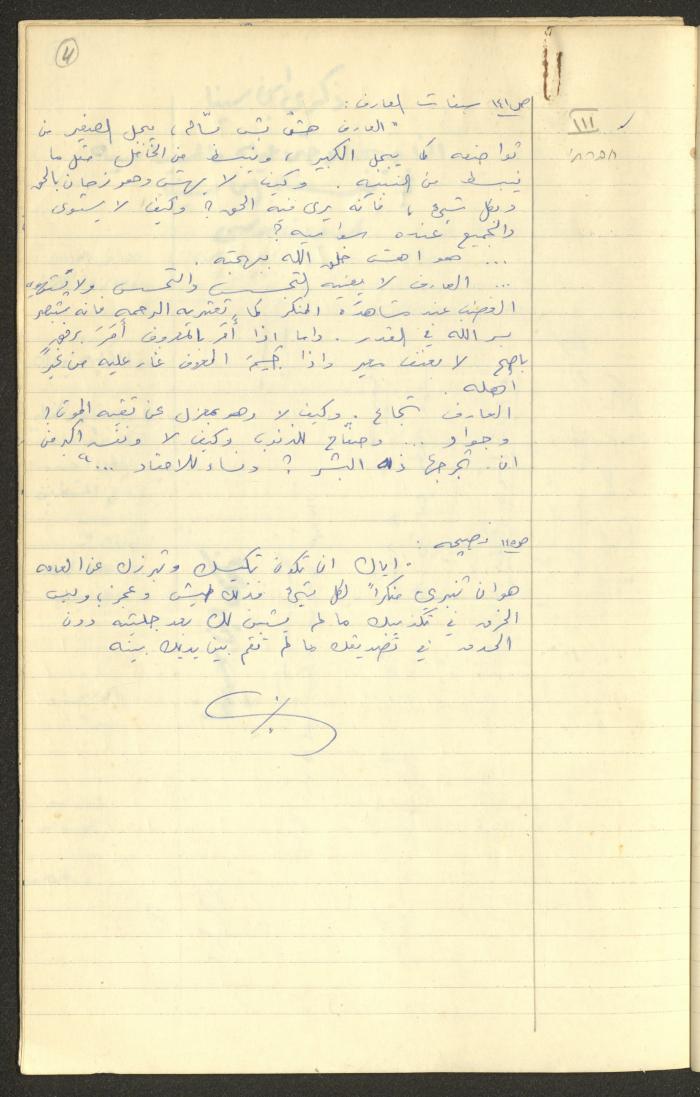 4
ص١٤١ صفات العارف:
"العارف هشّ بشّ بسّام، يبجل الصغير من
تواضعه كما يبجل الكبير، وينبسط من الخامل مثل ما
ينبسط من النبيه. وكيف لا يهش وهو فرحان بالحق
وبكل شيء، فانه يرى فيه الحق؟ وكيف لا يستوي
والجميع عنده سواسية؟
... هو اهش خلق الله ببهجته.
... العارف لا يعنيه التجسس والتحسس ولا يستهويه
الغضب عند مشاهدة المنكر كما تعتريه الرحمة فانه مستبصر
بسر الله في القدر. واما اذا أمر بالمعروف أمر برفق
ناصح لا بعنف معير واذا جسم المعروف غار عليه من غير
أهله.
العارف شجاع. وكيف لا وهو بمعزل عن تقية الموت؟
وجواد ... وصفّاح للذنوب وكيف لا ونفسه اكبر من
ان تجرحها ذلة البشر؟ ونساء للاحقاد ..."
نصيحة:
"اياك ان تكون تكيسك وتبرزك عن العامة
هو ان تنبري منكراً لكل شيء فذلك طيش وعجز، وليس
الخرق في تكذيبك ما لم يستبن لك بعد جليته دون
الخرق في تصديقك ما لم تقم بين يديك بينة
III